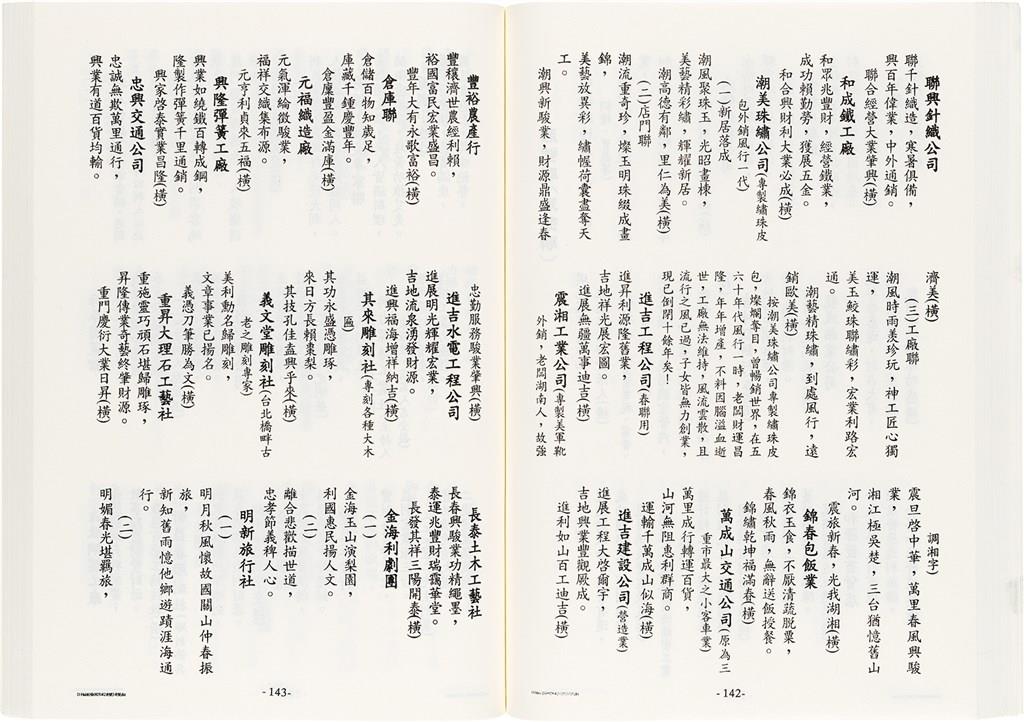 聯興針織公司
聯千針織造，寒暑俱備，
興百年偉業，中外通銷。
聯合經營大業肇興(橫)
和成鐵工廠
和眾兆豐財，經營鐵業，
成功賴勤勞，獲展五金。
和合興財利大業必成(橫)
潮美珠繡公司(專製繡珠皮
包外銷風行一代
(一)新居落成
潮風聚珠玉，光昭畫棟，
美藝精彩繡，輝耀新居。
潮高德有鄰，里仁為美(橫)
(二)店門聯
潮流重奇珍，燦玉明珠綴成畫
錦，
美藝放異彩，繡幄荷囊盡奪天
工。
潮興新駿業，財源鼎盛逢春
濟美(橫)
(三)工廠聯
潮風時雨羨珍玩，神工匠心獨
運，
美玉鮫珠聯繡彩，宏業利路宏
通。
潮藝精珠繡，到處風行，遠
銷歐美(橫)
按潮美珠繡公司專製繡珠皮
包，燦爛奪目，曾暢銷世界，在五
六十年代風行一時，老闆財運昌
隆，年年增產，不料因腦溢血逝
世，工廠無法維持，風流雲散，且
流行之風已過，子女皆無力創業，
現已倒閉十餘年矣！
進吉工程公司(春聯用)
進昇利源隆舊業，
吉地祥光展宏圖。
進展無疆萬事迪吉(橫)
震湘工業公司(專製美軍靴
外銷，老闆湖南人，故強
調湘字)
震旦啓中華，萬里春風興駿
業，
湘江極吳楚，三台猶憶舊山
河。
震旅新春，光我湖湘(橫)
錦春包飯業
錦衣玉食，不厭清蔬脫粟，
春風秋雨，無辭送飯授餐。
錦繡乾坤福滿春(橫)
萬成山交通公司(原為三
重市最大之小客車業)
萬里成行轉運百貨，
山河無阻惠利群商。
運輸千萬成山似海(橫)
進吉建設公司(營造業)
進展工程大啓爾宇，
吉地興業豐觀厥成。
進利如山百工迪吉(橫)
-142-
豐裕農產行
豐穰濟世農經利賴，
裕國富民宏業盛昌。
豐年大有永歌富裕(橫)
倉庫聯
倉儲百物知歲足，
庫藏千鍾慶豐年。
倉廩豐盈金滿庫(橫)
元福織造廠
元氣渾綸徵駿業，
福祥交織集布源。
元亨利貞來五福(橫)
興隆彈簧工廠
興業如繞鐵百轉成鋼，
隆製作彈簧千里通銷。
興家啓泰實業昌隆(橫)
忠興交通公司
忠誠無欺萬里通行，
興業有道百貨均輸。
忠勤服務駿業肇興(橫)
進吉水電工程公司
進展明光輝耀宏業，
吉地流泉湧發財源。
進興福海增祥納吉(橫)
其來雕刻社(專刻各種大木
匾)
其功永盛憑雕琢，
來日方長賴棗梨。
其技孔佳盍興乎來(橫)
義文堂雕刻社(台北橋畔古
老之雕刻專家)
美利動名歸雕刻，
文章事業已揚名。
義憑刀筆勝為文(橫)
重昇大理石工藝社
重施靈巧頑石堪歸雕琢，
昇隆傳業奇藝終肇財源。
重門慶衍大業日昇(橫)
長泰土木工藝社
長春興駿業功精繩墨，
泰運兆豐財瑞靄華堂。
長發其祥三陽開泰(橫)
金海利劇團
(一)
金海玉山演梨園，
利國惠民揚人文。
(二)
離合悲歡描世道，
忠孝節義稗人心。
明新旅行社
(一)
明月秋風懷故國關山仲春振
旅，
新知舊雨憶他鄉遊蹟涯海通
行。
(二)
明媚春光堪羈旅，
-143-